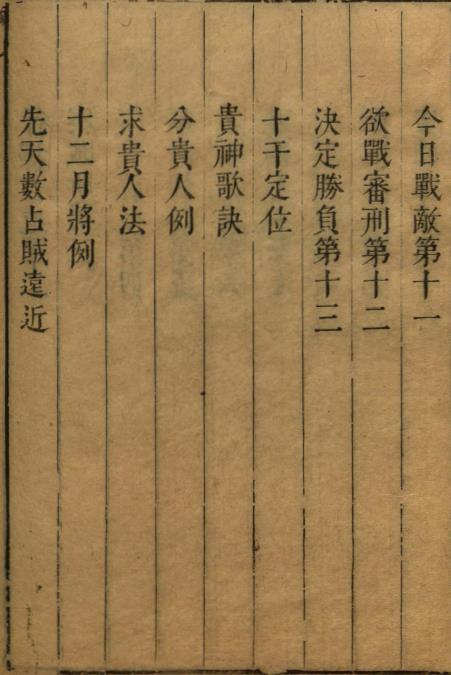 今日戰敵第十一
欲戰審刑第十二
決定勝負第十三
十干定位
貴神歌訣
分貴人例
求貴人法
十二月將例
先天數占賊遠近